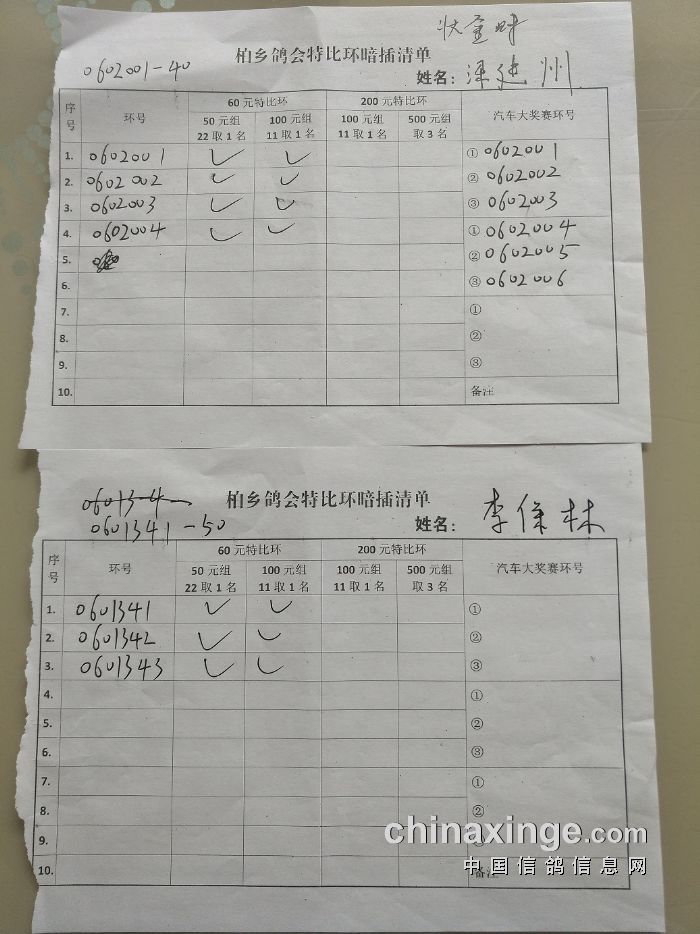 状金时
柏乡鸽会特比环暗插清单
0602001-40
姓名：梁建州
序号 环号 60元特比环 200元特比环 汽车大奖赛环号
50元组 22取1名 100元组 11取1名 100元组 11取1名 500元组 取3名
1. 0602001 ✓ ✓ ① 0602001
2. 0602002 ✓ ✓ ② 0602002
3. 0602003 ✓ ✓ ③ 0602003
4. 0602004 ✓ ✓ ① 0602004
5. ② 0602005
6. ③ 0602006
7. ①
8. ②
9. ③
10. 备注
柏乡鸽会特比环暗插清单
06013-4
0601341-50
姓名：李保林
序号 环号 60元特比环 200元特比环 汽车大奖赛环号
50元组 22取1名 100元组 11取1名 100元组 11取1名 500元组 取3名
1. 0601341 ✓ ✓ ①
2. 0601342 ✓ ✓ ②
3. 0601343 ✓ ✓ ③
4. ①
5. ②
6. ③
7. ①
8. ②
9.
10. 备注
chinaxinge.com
中国信鸽信息网